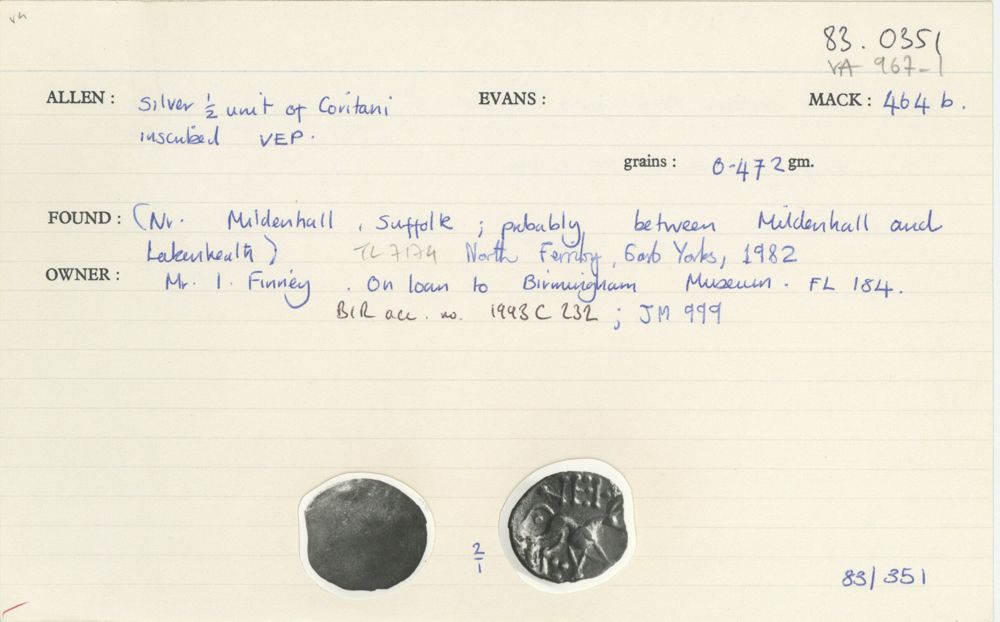 vh
83.0351
VA 967-1
ALLEN : Silver ½ unit of Coritani EVANS : MACK : 464 b.
inscribed VEP.
grains : 0.472 gm.
FOUND : (Nr. Mildenhall, Suffolk ; probably between Mildenhall and
Lakenheath) TL 7174 North Ferriby, Yorks, 1982
OWNER : Mr. I. Finney. On loan to Birmingham Museum. FL 184.
BIR acc. no. 1993 C 232 ; JM 999
VEP
2/1
83/351